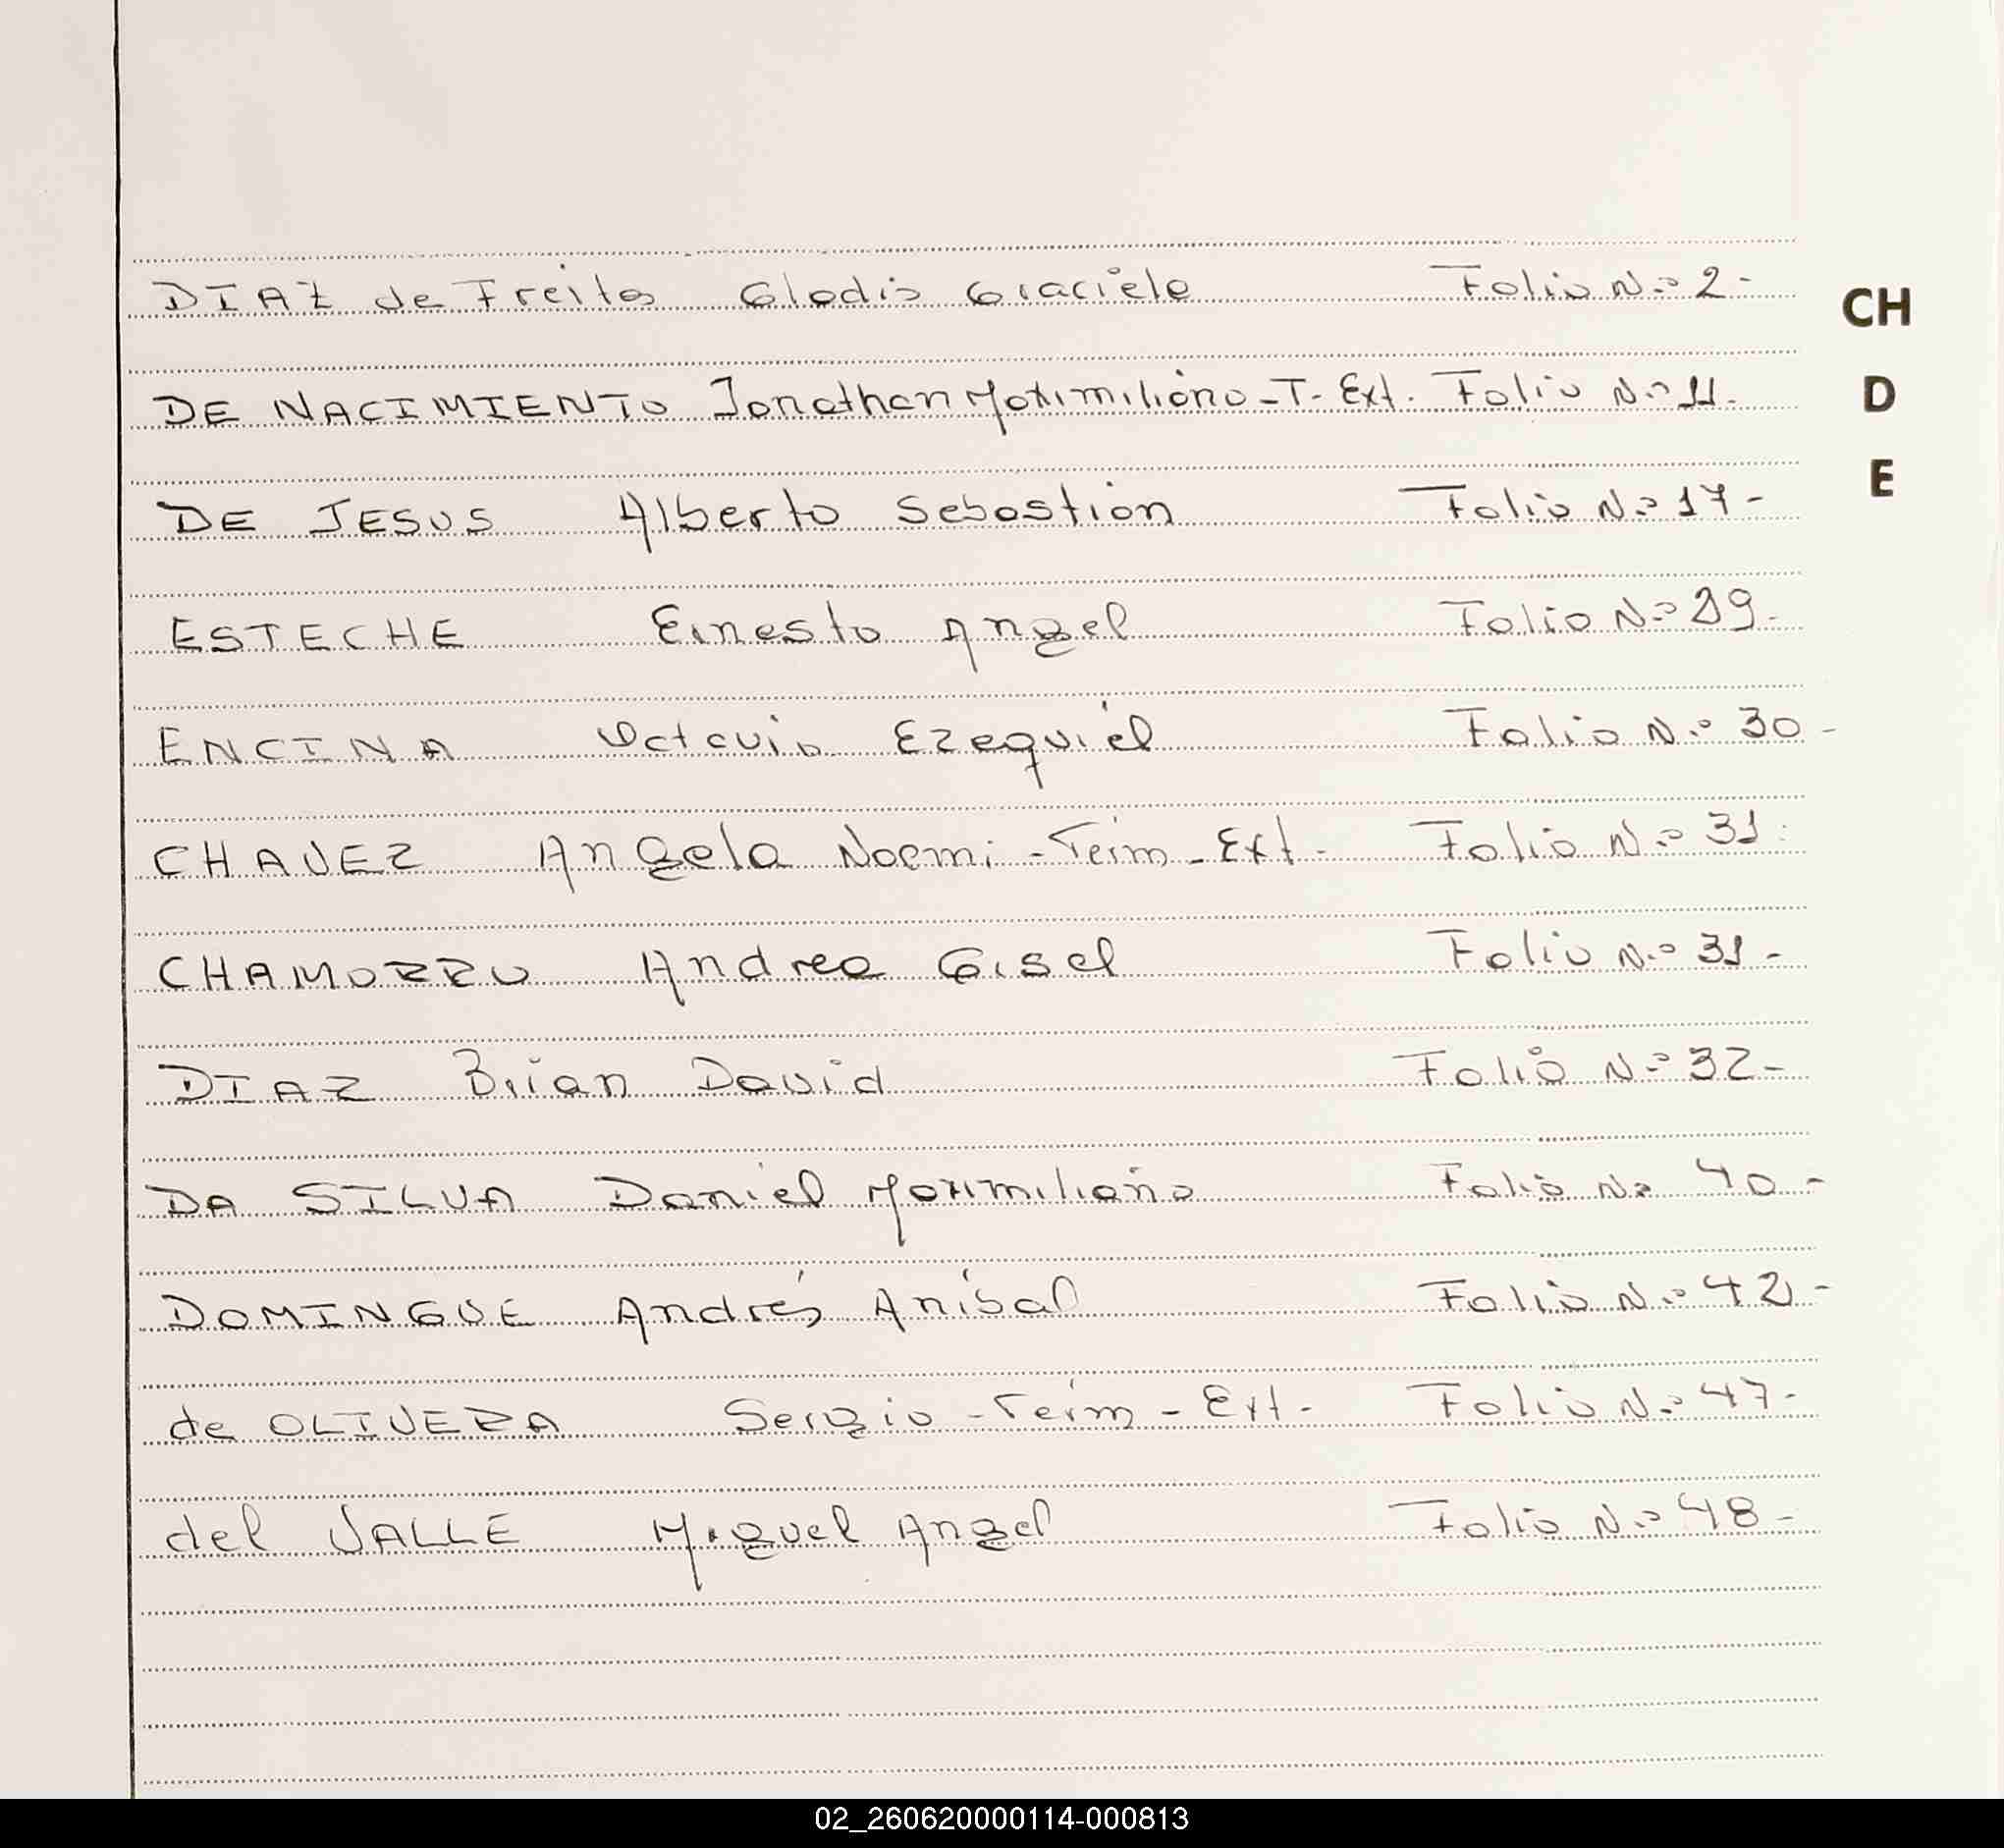 DIAZ de Freitas Gladis Graciela Folio N.º 2 -
CH
DE NACIMIENTO Jonathan Maximiliano - T. Ext. Folio N.º 11.
D
E
DE JESUS Alberto Sebastian Folio N.º 17 -
ESTECHE Ernesto Angel Folio N.º 29 -
ENCINA Octavio Ezequiel Folio N.º 30 -
CHAVEZ Angela Noemi - Term - Ext - Folio N.º 31.
CHAMORRO Andrea Gisel Folio N.º 31 -
DIAZ Brian David Folio N.º 32 -
DA SILVA Daniel Maximiliano Folio Nº 40 -
DOMINGUE Andrés Aníbal Folio N.º 42 -
de OLIVERA Sergio - Term - Ext - Folio N.º 47 -
del VALLE Miguel Angel Folio N.º 48 -
02_260620000114-000813